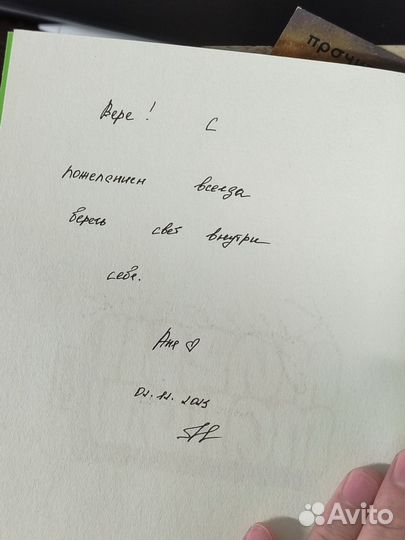 прочи
Вере! С
пожеланием всегда
беречь свет внутри
себя.
Аня ♡
02.12.2023
Avito